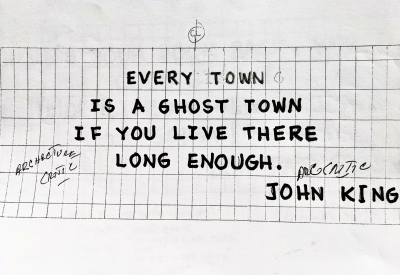 EVERY TOWN
IS A GHOST TOWN
IF YOU LIVE THERE
LONG ENOUGH.
CRITIC
JOHN KING